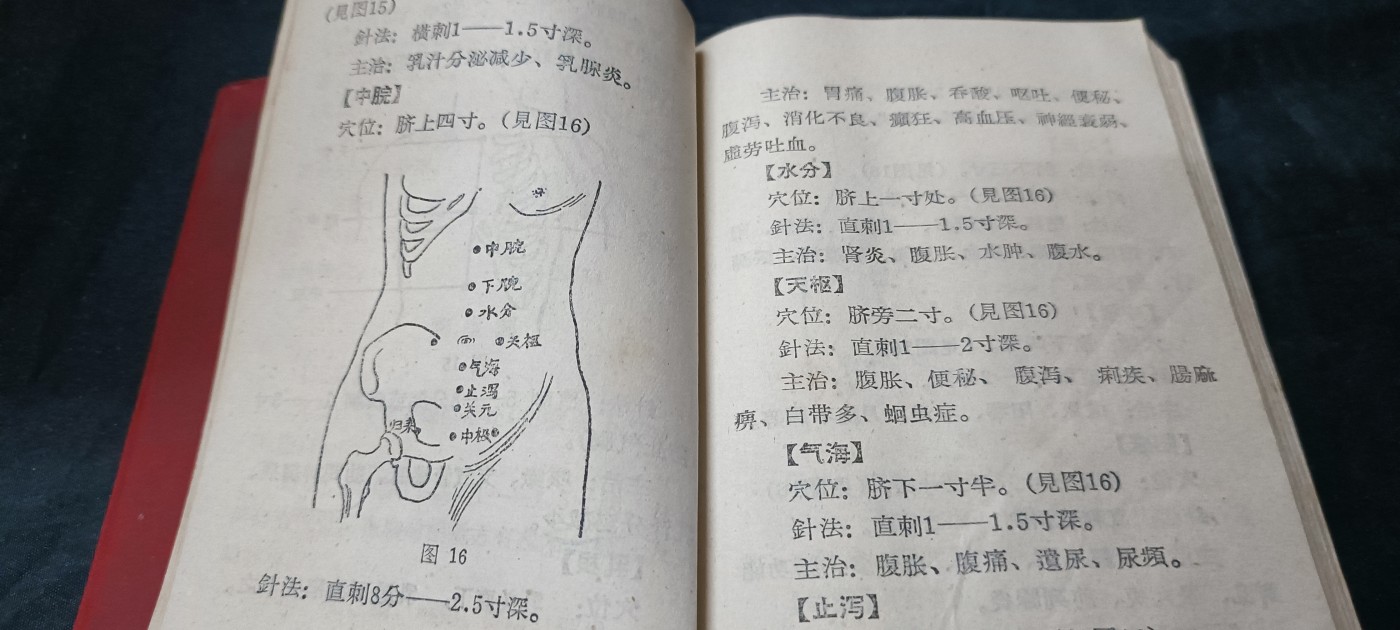 (見图15)
針法：横刺1——1.5寸深。
主治：乳汁分泌减少、乳腺炎。
【中脘】
穴位：脐上四寸。(見图16)
中脘
下脘
水分
天枢
气海
止泻
关元
归来
中极
图 16
針法：直刺8分——2.5寸深。
主治：胃痛、腹胀、吞酸、呕吐、便秘、
腹泻、消化不良、癲狂、高血压、神經衰弱、
虛劳吐血。
【水分】
穴位：脐上一寸处。(見图16)
針法：直刺1——1.5寸深。
主治：肾炎、腹胀、水肿、腹水。
【天枢】
穴位：脐旁二寸。(見图16)
針法：直刺1——2寸深。
主治：腹胀、便秘、腹泻、痢疾、腸麻
痹、白带多、蛔虫症。
【气海】
穴位：脐下一寸半。(見图16)
針法：直刺1——1.5寸深。
主治：腹胀、腹痛、遺尿、尿頻。
【止泻】